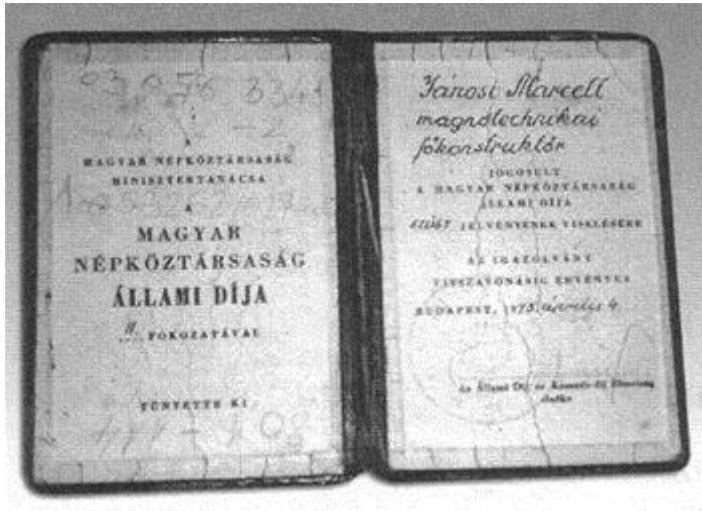 A
MAGYAR NÉPKÖZTÁRSASÁG
MINISZTERTANÁCSA
A
MAGYAR
NÉPKÖZTÁRSASÁG
ÁLLAMI DÍJA
II. FOKOZATÁVAL
TÜNTETTE KI
Jánosi Marcell
magnótechnikai
főkonstruktőr
JOGOSULT
A MAGYAR NÉPKÖZTÁRSASÁG
ÁLLAMI DÍJA
EZÜST JELVÉNYÉNEK VISELÉSÉRE
AZ IGAZOLVÁNY
VISSZAVONÁSIG ÉRVÉNYES
BUDAPEST, 1975. április 4.
Az Állami Díj és Kossuth-díj Bizottság